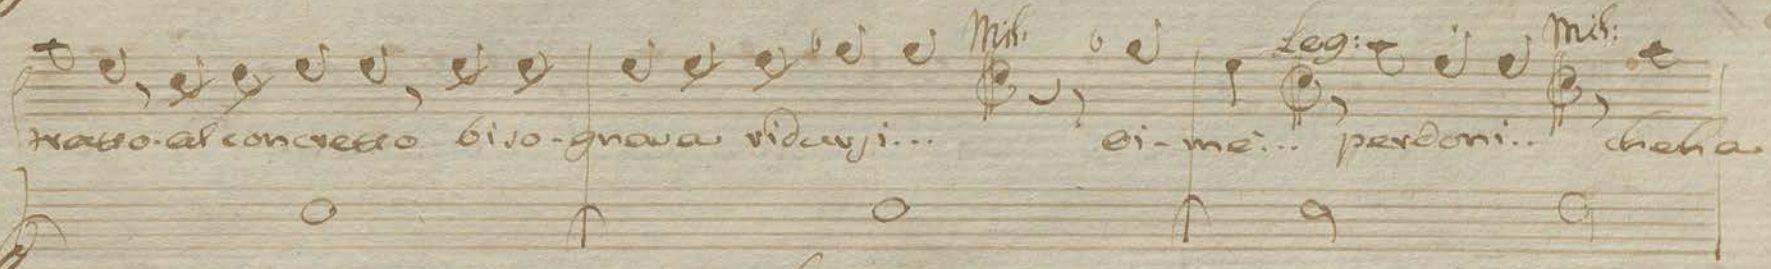 Mil: Leg: Mil:
tratto al concretto biso-gnava ridursi... oi-mè... perdoni... che ha